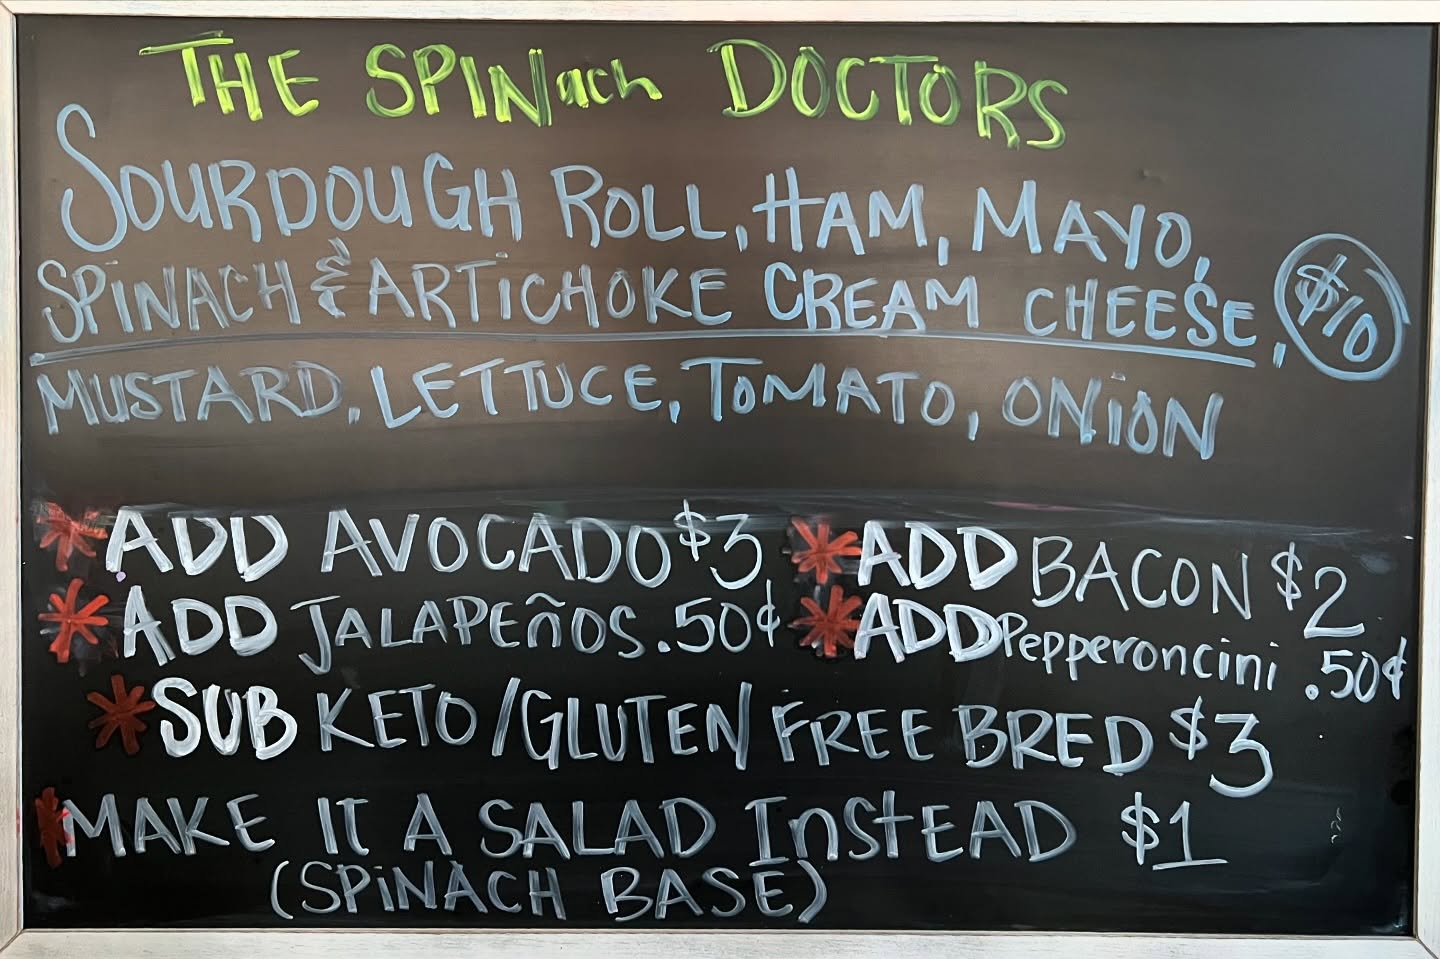 THE SPINach DOCTORS
SOURDOUGH ROLL, HAM, MAYO,
SPINACH & ARTICHOKE CREAM CHEESE, $10
MUSTARD, LETTUCE, TOMATO, ONION
* ADD AVOCADO $3 * ADD BACON $2
* ADD JALAPEñOS .50¢ * ADD Pepperoncini .50¢
* SUB KETO/GLUTEN FREE BRED $3
* MAKE IT A SALAD INSTEAD $1
(SPINACH BASE)